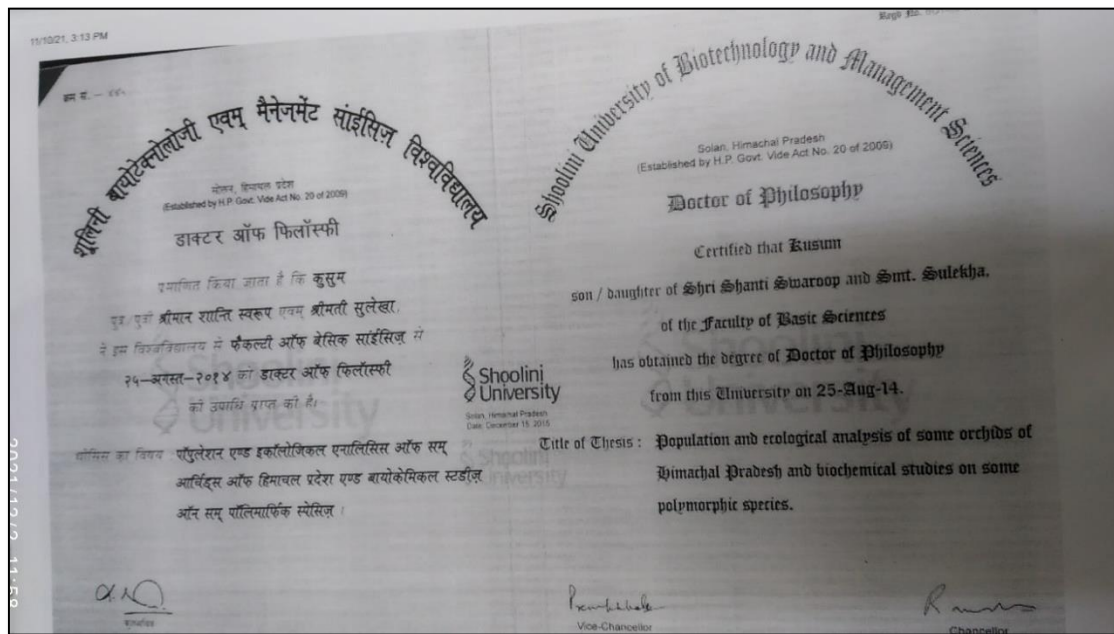 11/10/21, 3:13 PM
क्रम सं. –
शूलिनी बायोटेक्नोलोजी एवम् मैनेजमेंट सांईसिज़ विश्वविद्यालय
सोलन, हिमाचल प्रदेश
(Established by H.P. Govt. Vide Act No. 20 of 2009)
डाक्टर ऑफ फिलॉस्फी
प्रमाणित किया जाता है कि कुसुम
पुत्र/पुत्री श्रीमान शान्ति स्वरूप एवम श्रीमती सुलेखा,
ने इस विश्वविद्यालय से फैकल्टी ऑफ बेसिक सांईसिज़ से
२५–अगस्त–२०१४ को डाक्टर ऑफ फिलॉस्फी
की उपाधि प्राप्त की है।
थीसिस का विषय : पॉपुलेशन एण्ड इकॉलोजिकल एनालिसिस ऑफ सम्
आर्किड्स ऑफ हिमाचल प्रदेश एण्ड बायोकेमिकल स्टडीज़
ऑन सम् पॉलिमार्फिक स्पेसिज़।
कुलसचिव
Shoolini
University
Solan, Himachal Pradesh
Date: December 15, 2015
Regd No.
Shoolini University of Biotechnology and Management Sciences
Solan, Himachal Pradesh
(Established by H.P. Govt. Vide Act No. 20 of 2009)
Doctor of Philosophy
Certified that Kusum
son / daughter of Shri Shanti Swaroop and Smt. Sulekha,
of the Faculty of Basic Sciences
has obtained the degree of Doctor of Philosophy
from this University on 25-Aug-14.
Title of Thesis : Population and ecological analysis of some orchids of
Himachal Pradesh and biochemical studies on some
polymorphic species.
Vice-Chancellor
Chancellor
Shoolini
University
Shoolini
University
Shoolini
University
2021/12/2 11:58